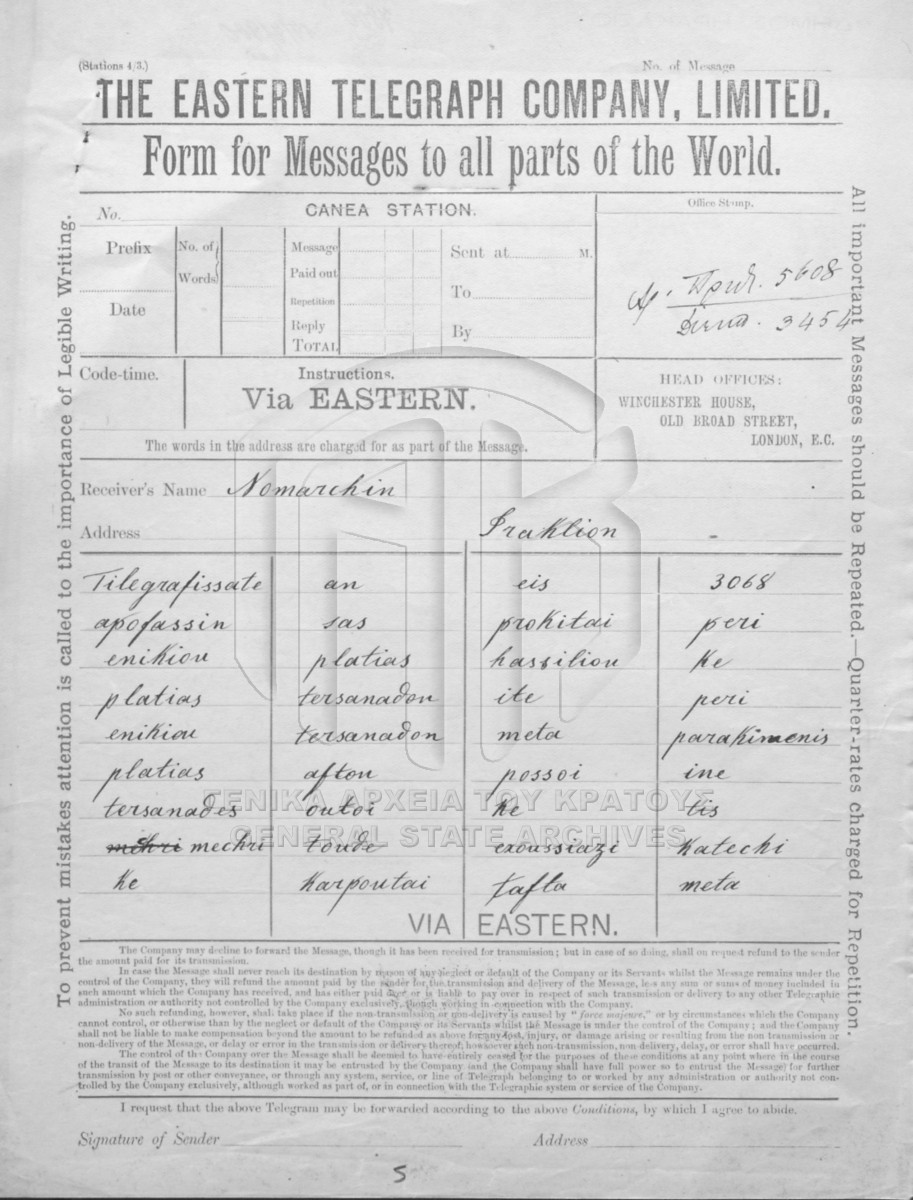 (Stations 4/3.)
No. of Message
THE EASTERN TELEGRAPH COMPANY, LIMITED.
Form for Messages to all parts of the World.
No.
CANEA STATION.
Office Stamp.
Prefix
No. of Words
Message
Sent at M.
Paid out
Repetition
To
Date
Reply
By
TOTAL
5608
3454
Code-time.
Instructions.
Via EASTERN.
HEAD OFFICES:
WINCHESTER HOUSE,
OLD BROAD STREET,
LONDON, E.C.
The words in the address are charged for as part of the Message.
Receiver's Name Nomarchin
Address Iraklion
Tilegrafissate an eis 3068
apofassin sas prokitai peri
enikiou platias hassiliou ke
platias tersanadon ite peri
enikiou tersanadon meta parakimenis
platias afton possoi ine
tersanades outoi ke tis
michri mechri toude exoussiazi katechi
ke karpoutai tafta meta
VIA EASTERN.
ΓΕΝΙΚΑ ΑΡΧΕΙΑ ΤΟΥ ΚΡΑΤΟΥΣ
GENERAL STATE ARCHIVES
The Company may decline to forward the Message, though it has been received for transmission; but in case of so doing, shall on request refund to the sender
the amount paid for its transmission.
In case the Message shall never reach its destination by reason of any neglect or default of the Company or its Servants whilst the Message remains under the
control of the Company, they will refund the amount paid by the sender for the transmission and delivery of the Message, less any sum or sums of money included in
such amount which the Company has received, and has either paid over or is liable to pay over in respect of such transmission or delivery to any other Telegraphic
administration or authority not controlled by the Company exclusively, though working in connection with the Company.
No such refunding, however, shall take place if the non-transmission or non-delivery is caused by "force majeure," or by circumstances which the Company
cannot control, or otherwise than by the neglect or default of the Company or its Servants whilst the Message is under the control of the Company; and the Company
shall not be liable to make compensation beyond the amount to be refunded as above for any loss, injury, or damage arising or resulting from the non transmission or
non-delivery of the Message, or delay or error in the transmission or delivery thereof, howsoever such non-transmission, non delivery, delay, or error shall have occurred.
The control of the Company over the Message shall be deemed to have entirely ceased for the purposes of these conditions at any point where in the course
of the transit of the Message to its destination it may be entrusted by the Company (and the Company shall have full power so to entrust the Message) for further
transmission by post or other conveyance, or through any system, service, or line of Telegraph belonging to or worked by any administration or authority not con-
trolled by the Company exclusively, although worked as part of, or in connection with the Telegraphic system or service of the Company.
I request that the above Telegram may be forwarded according to the above Conditions, by which I agree to abide.
Signature of Sender Address
5
To prevent mistakes attention is called to the importance of Legible Writing.
All important Messages should be Repeated.—Quarter-rates charged for Repetition.